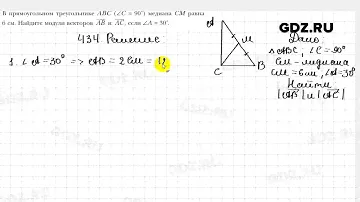 В прямоугольном треугольнике ABC (∠C = 90°) медиана CM равна
6 см. Найдите модули векторов AB и AC, если ∠A = 30°.
434 Решение
1. ∠A = 30° => AB = 2CM = 12
A
M
C
B
GDZ.RU
Дано:
△ABC, ∠C = 90°
CM - медиана
CM = 6см, ∠A = 30°
Найти
|AB| и |AC|